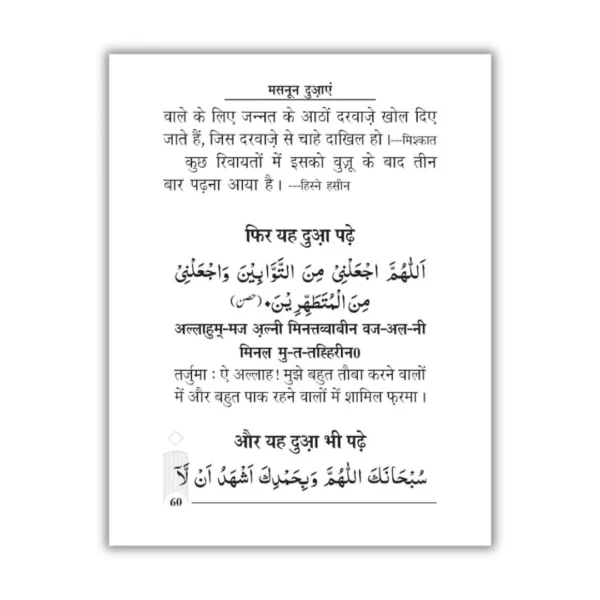 मसनून दुआ़एं
वाले के लिए जन्नत के आठों दरवाज़े खोल दिए
जाते हैं, जिस दरवाज़े से चाहे दाखिल हो।---मिश्कात
कुछ रिवायतों में इसको वुज़ू के बाद तीन
बार पढ़ना आया है। ---हिस्ने हसीन
फिर यह दुआ़ पढ़े
اَللّٰهُمَّ اجْعَلْنِیْ مِنَ التَّوَّابِیْنَ وَاجْعَلْنِیْ
مِنَ الْمُتَطَهِّرِیْنَ۰ (حصن)
अल्लाहुम्-मज अ़ल्नी मिनत्तव्वाबीन वज-अल-नी
मिनल मु-त-तह्हिरीन0
तर्जुमा : ऐ अल्लाह! मुझे बहुत तौबा करने वालों
में और बहुत पाक रहने वालों में शामिल फ़रमा।
और यह दुआ़ भी पढ़े
سُبْحَانَكَ اللّٰهُمَّ وَبِحَمْدِكَ اَشْهَدُ اَنْ لَّآ
60